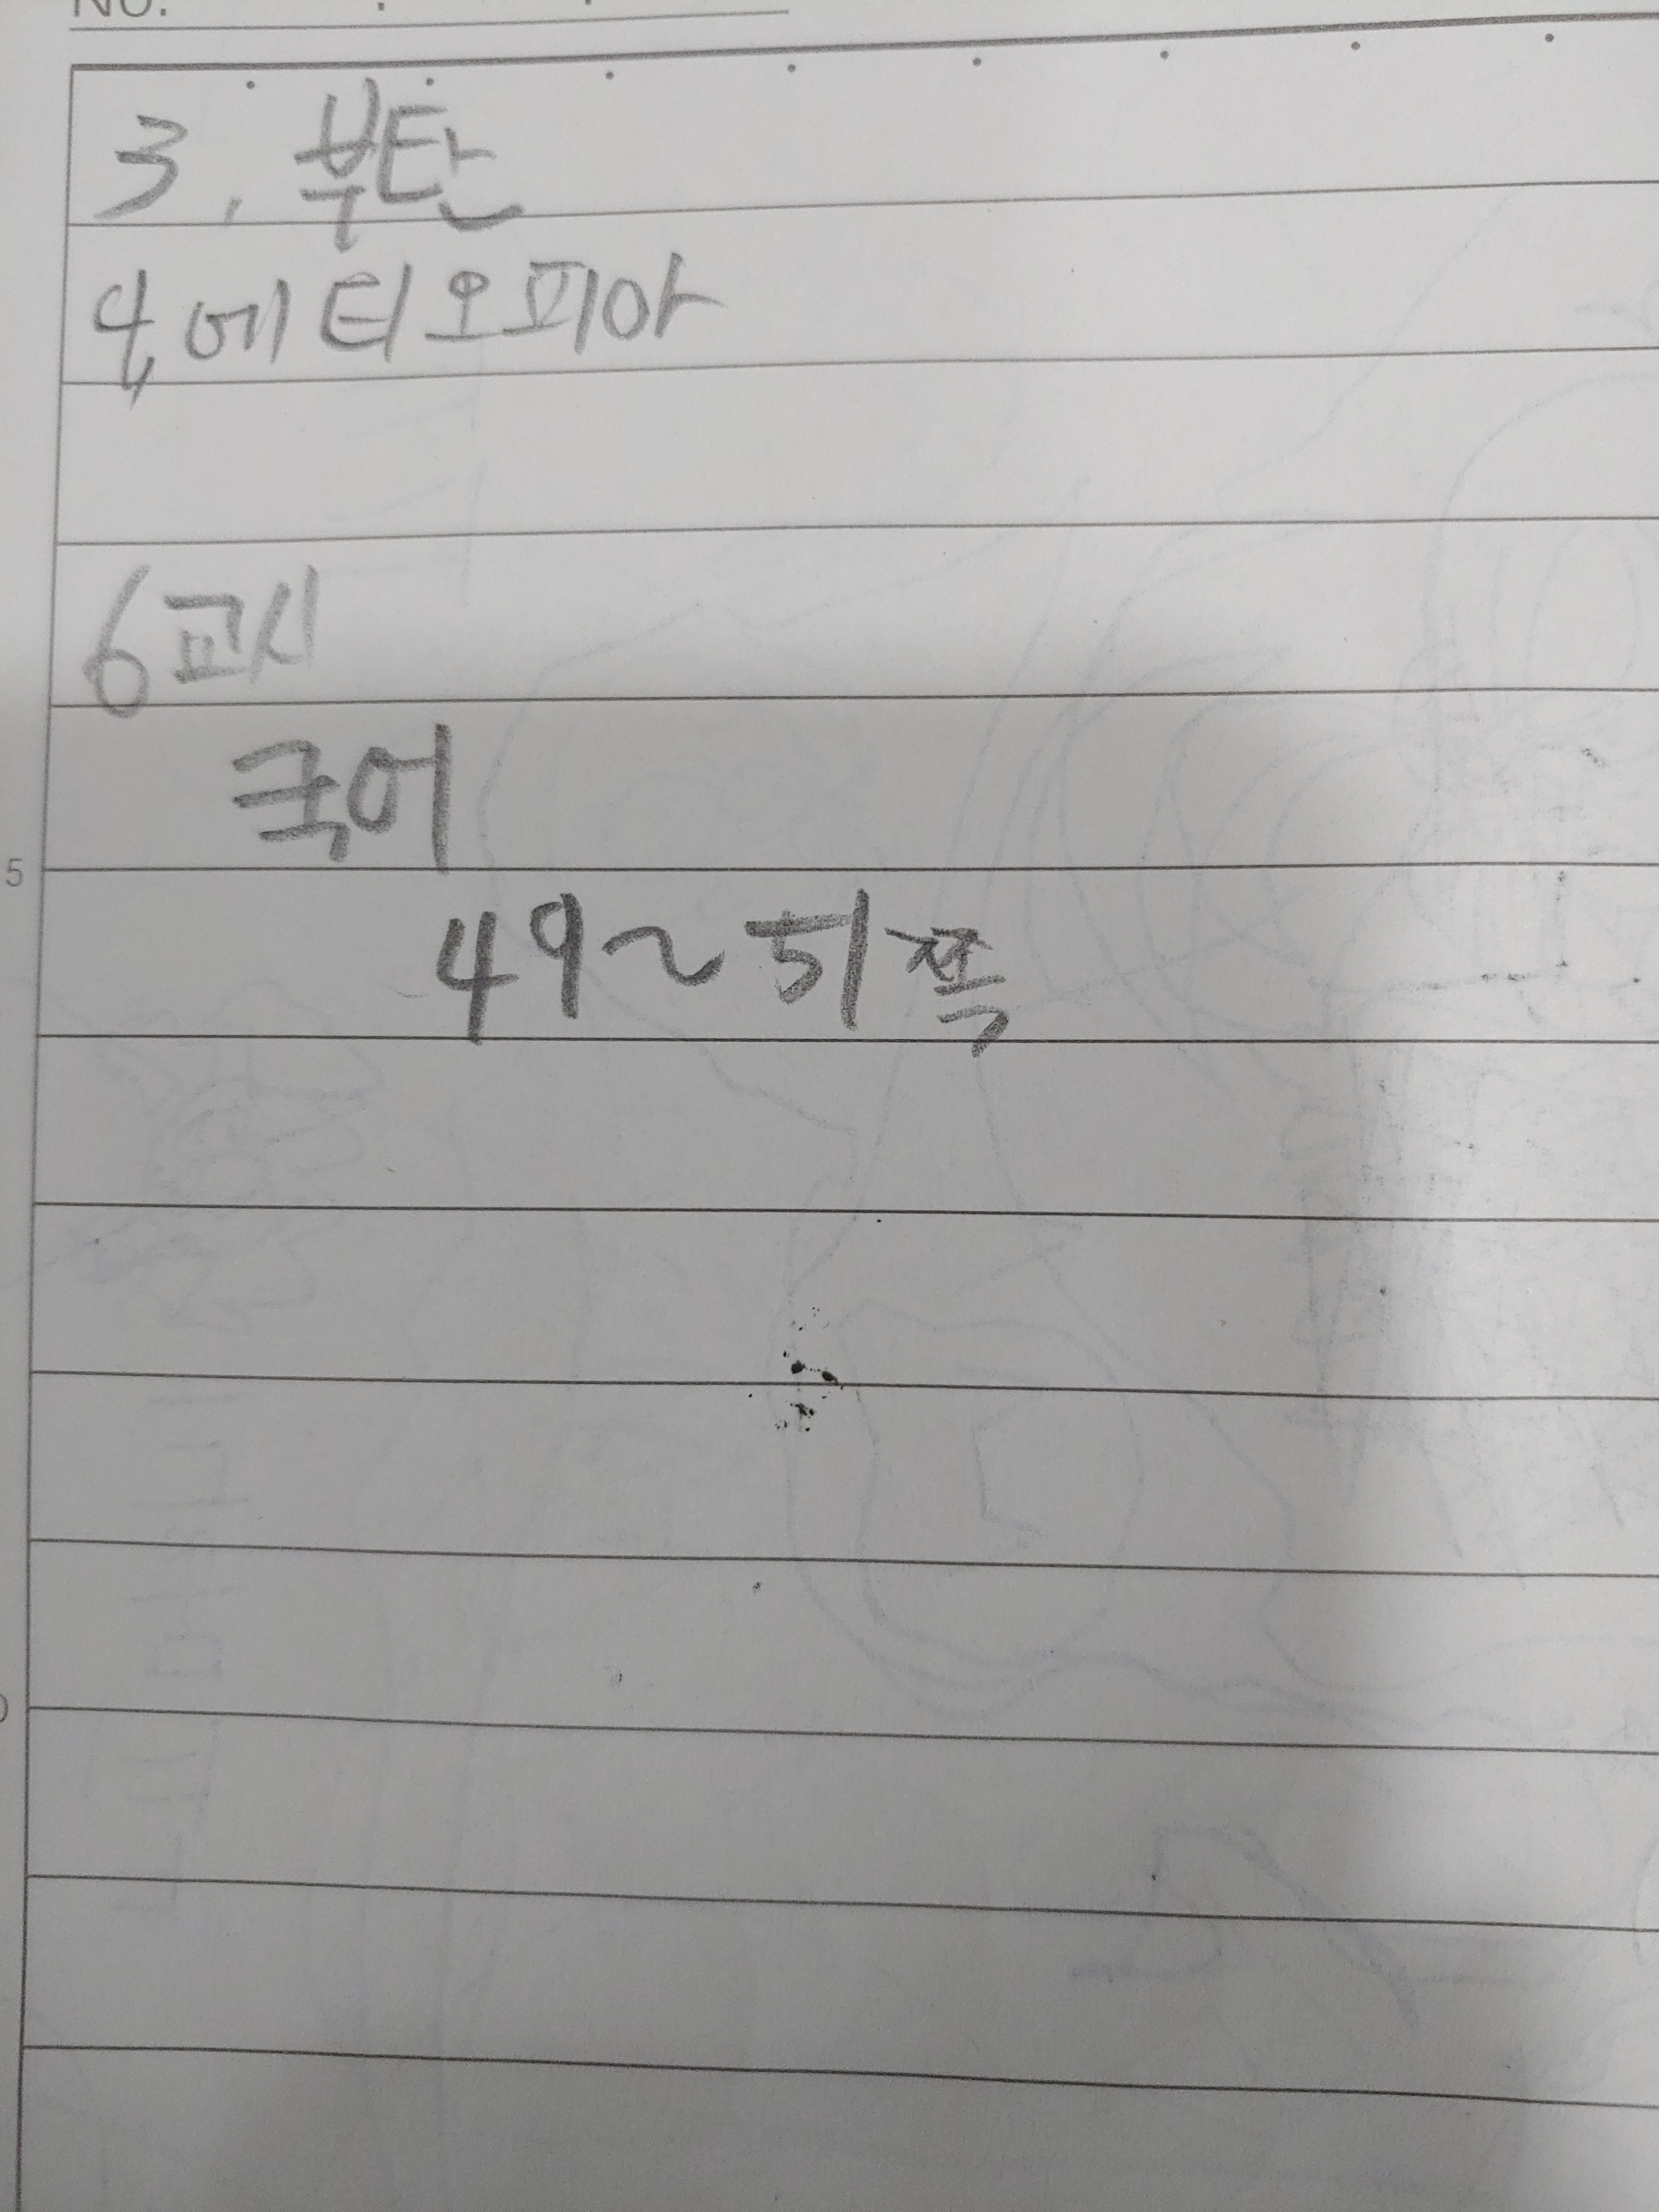 No.
3. 부탄
4. 에티오피아
6교시
국어
5
49~51쪽